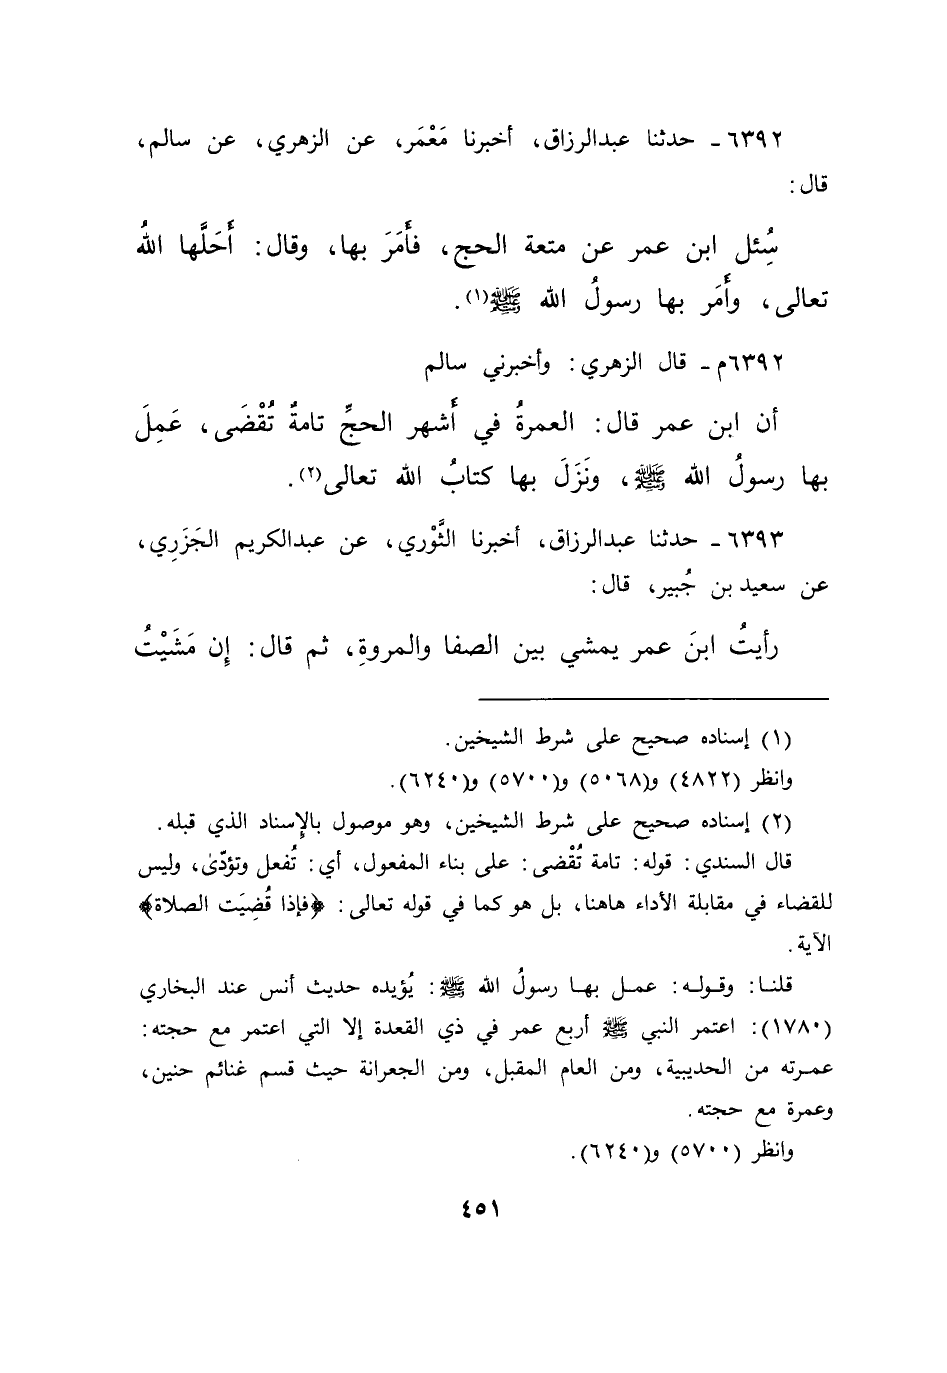 ٦٣٩٢ ـ حدثنا عبدالرزاق، أخبرنا مَعْمَر، عن الزهري، عن سالم،
قال:
سُئِل ابن عمر عن متعة الحج، فأَمَرَ بها، وقال: أَحَلَّها اللهُ
تعالى، وأَمَر بها رسولُ الله ﷺ(١).
٦٣٩٢م ـ قال الزهري: وأخبرني سالم
أن ابن عمر قال: العمرةُ في أَشهر الحجِّ تامةٌ تُقْضَى، عَمِلَ
بها رسولُ الله ﷺ، ونَزَلَ بها كتابُ الله تعالى(٢).
٦٣٩٣ ـ حدثنا عبدالرزاق، أخبرنا الثَّوْري، عن عبدالكريم الجَزَرِي،
عن سعيد بن جُبير، قال:
رأيتُ ابنَ عمر يمشي بين الصفا والمروةِ، ثم قال: إِن مَشَيْتُ
(١) إسناده صحيح على شرط الشيخين.
وانظر (٤٨٢٢) و(٥٠٦٨) و(٥٧٠٠) و(٦٢٤٠).
(٢) إسناده صحيح على شرط الشيخين، وهو موصول بالإِسناد الذي قبله.
قال السندي: قوله: تامة تُقْضى: على بناء المفعول، أي: تُفعل وتؤدّىٰ، وليس
للقضاء في مقابلة الأداء هاهنا، بل هو كما في قوله تعالى: ﴿فإذا قُضِيَت الصلاة﴾
الآية.
قلنـا: وقـولـه: عمـل بهـا رسولُ الله ﷺ: يُؤيده حديث أنس عند البخاري
(١٧٨٠): اعتمر النبي ﷺ أربع عمر في ذي القعدة إلا التي اعتمر مع حجته:
عمـرته من الحديبية، ومن العام المقبل، ومن الجعرانة حيث قسم غنائم حنين،
وعمرة مع حجته.
وانظر (٥٧٠٠) و(٦٢٤٠).
٤٥١